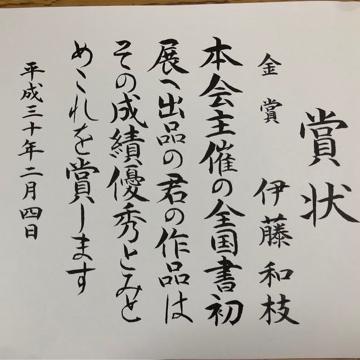 賞状
金賞 伊藤和枝
本会主催の全国書初
展へ出品の君の作品は
その成績優秀とみと
めこれを賞します
平成三十年二月四日